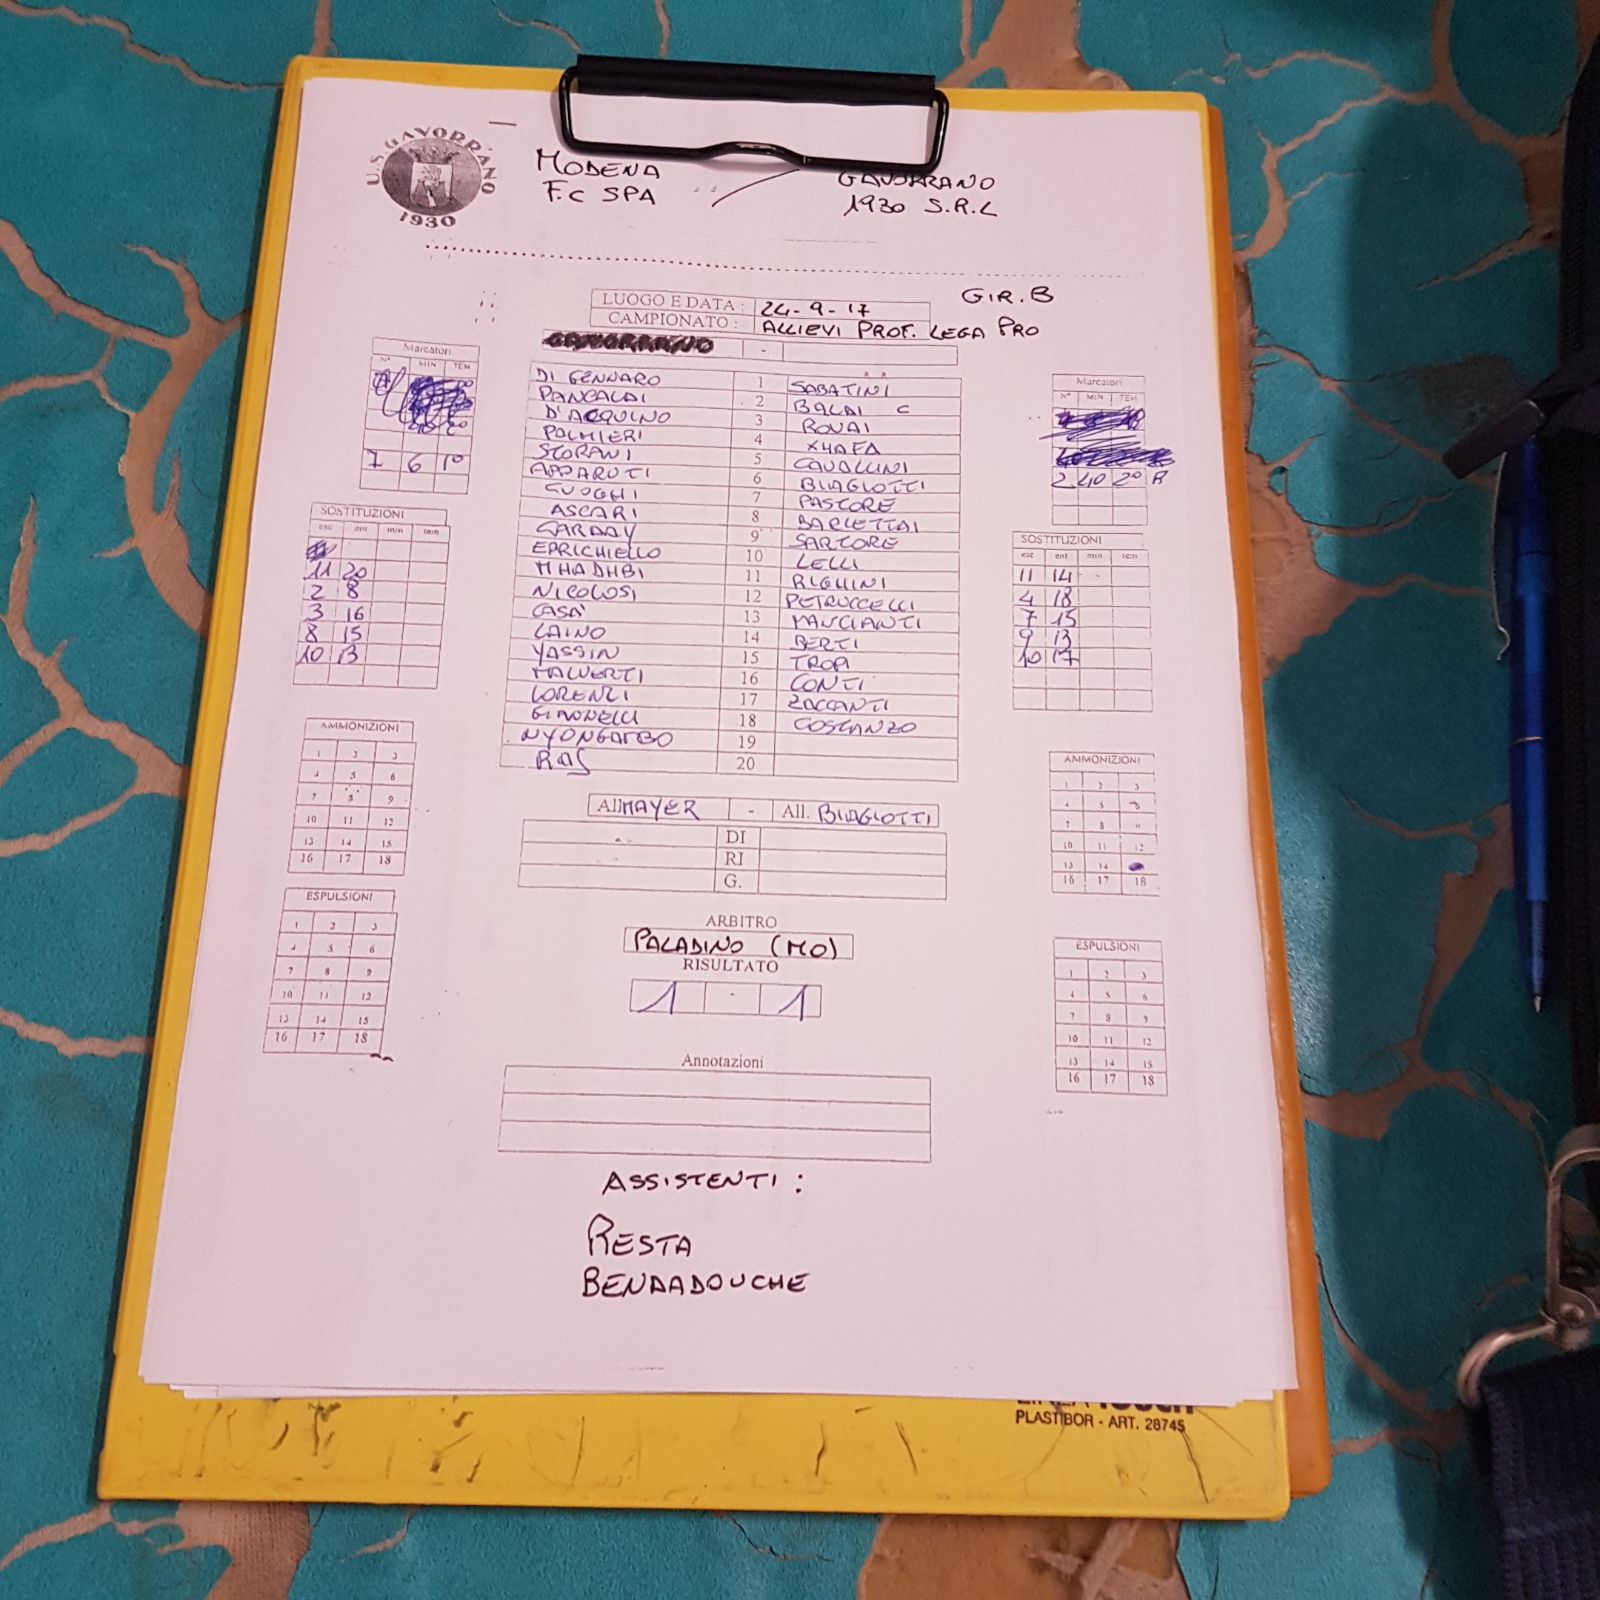 U.S. GAVORRANO
1930
MODENA
F.C SPA
GAVORRANO
1930 S.R.L
GIR. B
LUOGO E DATA : 24-9-17
CAMPIONATO : ALLIEVI PROF. LEGA PRO
GAVORRANO -
Marcatori
N° MIN TEM
7 6 1°
Marcatori
N° MIN TEM
2 40 2° R
DI GENNARO 1 SABATINI
PANCALDI 2 BALDI C
D'ACQUINO 3 BONAI
PALMIERI 4 XHAFA
STORANI 5 CAVALLINI
APPARUTI 6 BIAGIOTTI
GUOGHI 7 PASTORE
ASCARI 8 BARLETTAI
GARDAY 9 SARTORE
EPRICHIELLO 10 LELLI
MHADHBI 11 RIGHINI
NICOLOSI 12 PETRUCCELLI
CASA' 13 MANCIANTI
LAINO 14 BERTI
YASSIN 15 TROPI
MALVERTI 16 CONTI
LORENZI 17 ZACCANTI
GIANNELLI 18 COSTANZO
NYONGAMBO 19
RAS 20
SOSTITUZIONI
esc ent min tem
11 20
2 8
3 16
8 15
10 13
SOSTITUZIONI
esc ent min tem
11 14
4 18
7 15
9 13
10 17
AMMONIZIONI
1 2 3
4 5 6
7 8 9
10 11 12
13 14 15
16 17 18
AMMONIZIONI
1 2 3
4 5 6
7 8 9
10 11 12
13 14
16 17 18
All MAYER - All. BIAGIOTTI
DI
RI
G.
ESPULSIONI
1 2 3
4 5 6
7 8 9
10 11 12
13 14 15
16 17 18
ESPULSIONI
1 2 3
4 5 6
7 8 9
10 11 12
13 14 15
16 17 18
ARBITRO
PALADINO (MO)
RISULTATO
1 - 1
Annotazioni
ASSISTENTI :
RESTA
BENDADOUCHE
PLASTIBOR - ART. 28745